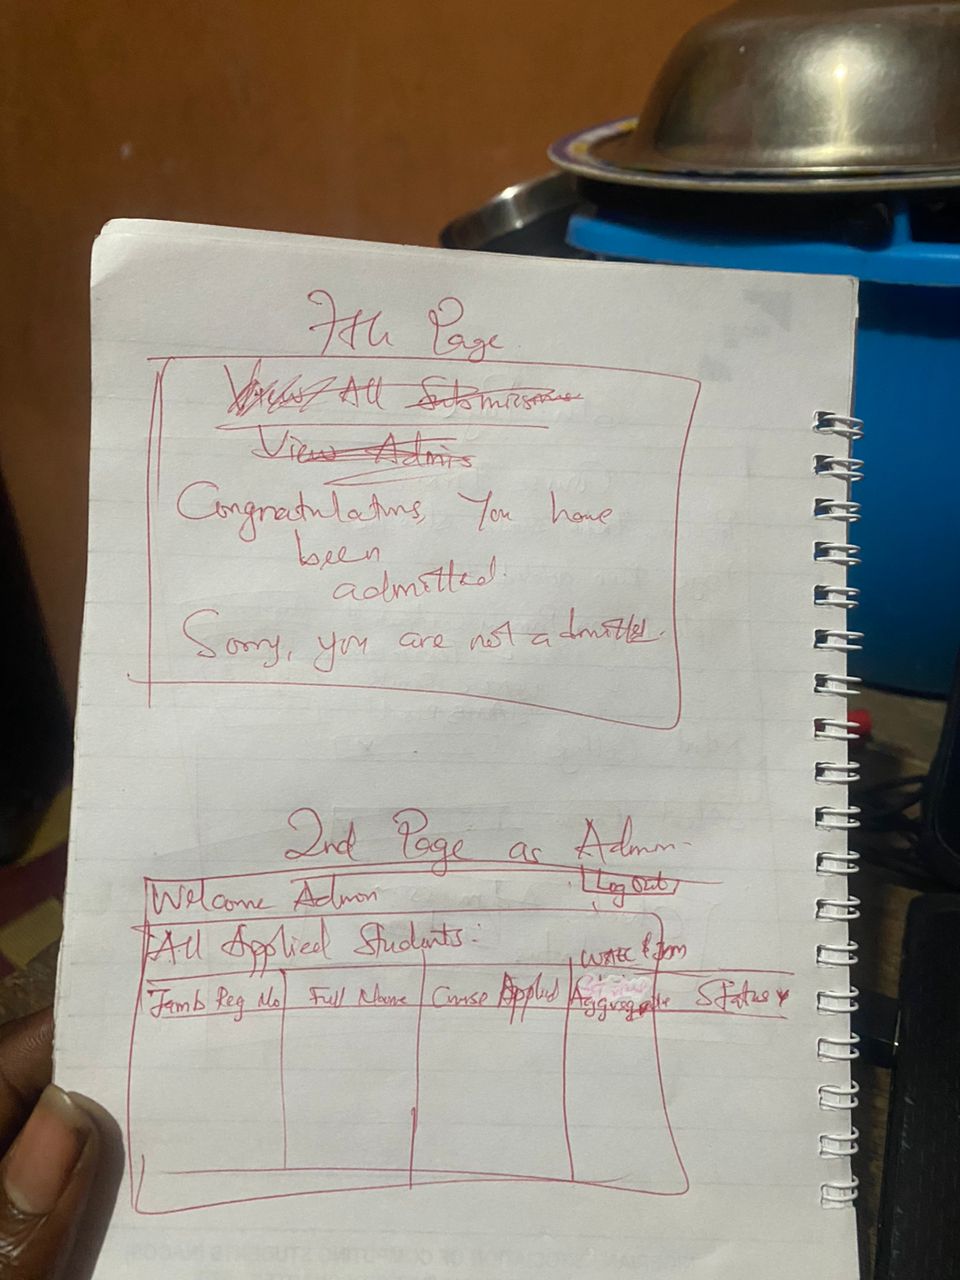 7th Page
View All Submissions
View Admis
Congratulatns, You have
been
admitted.
Sorry, you are not admitted.
2nd Page as Admin
Welcome Admin
Log Out
All Applied Students:
WAEC & Jam
Jamb Reg No Full Name Course Applied Aggregate Status